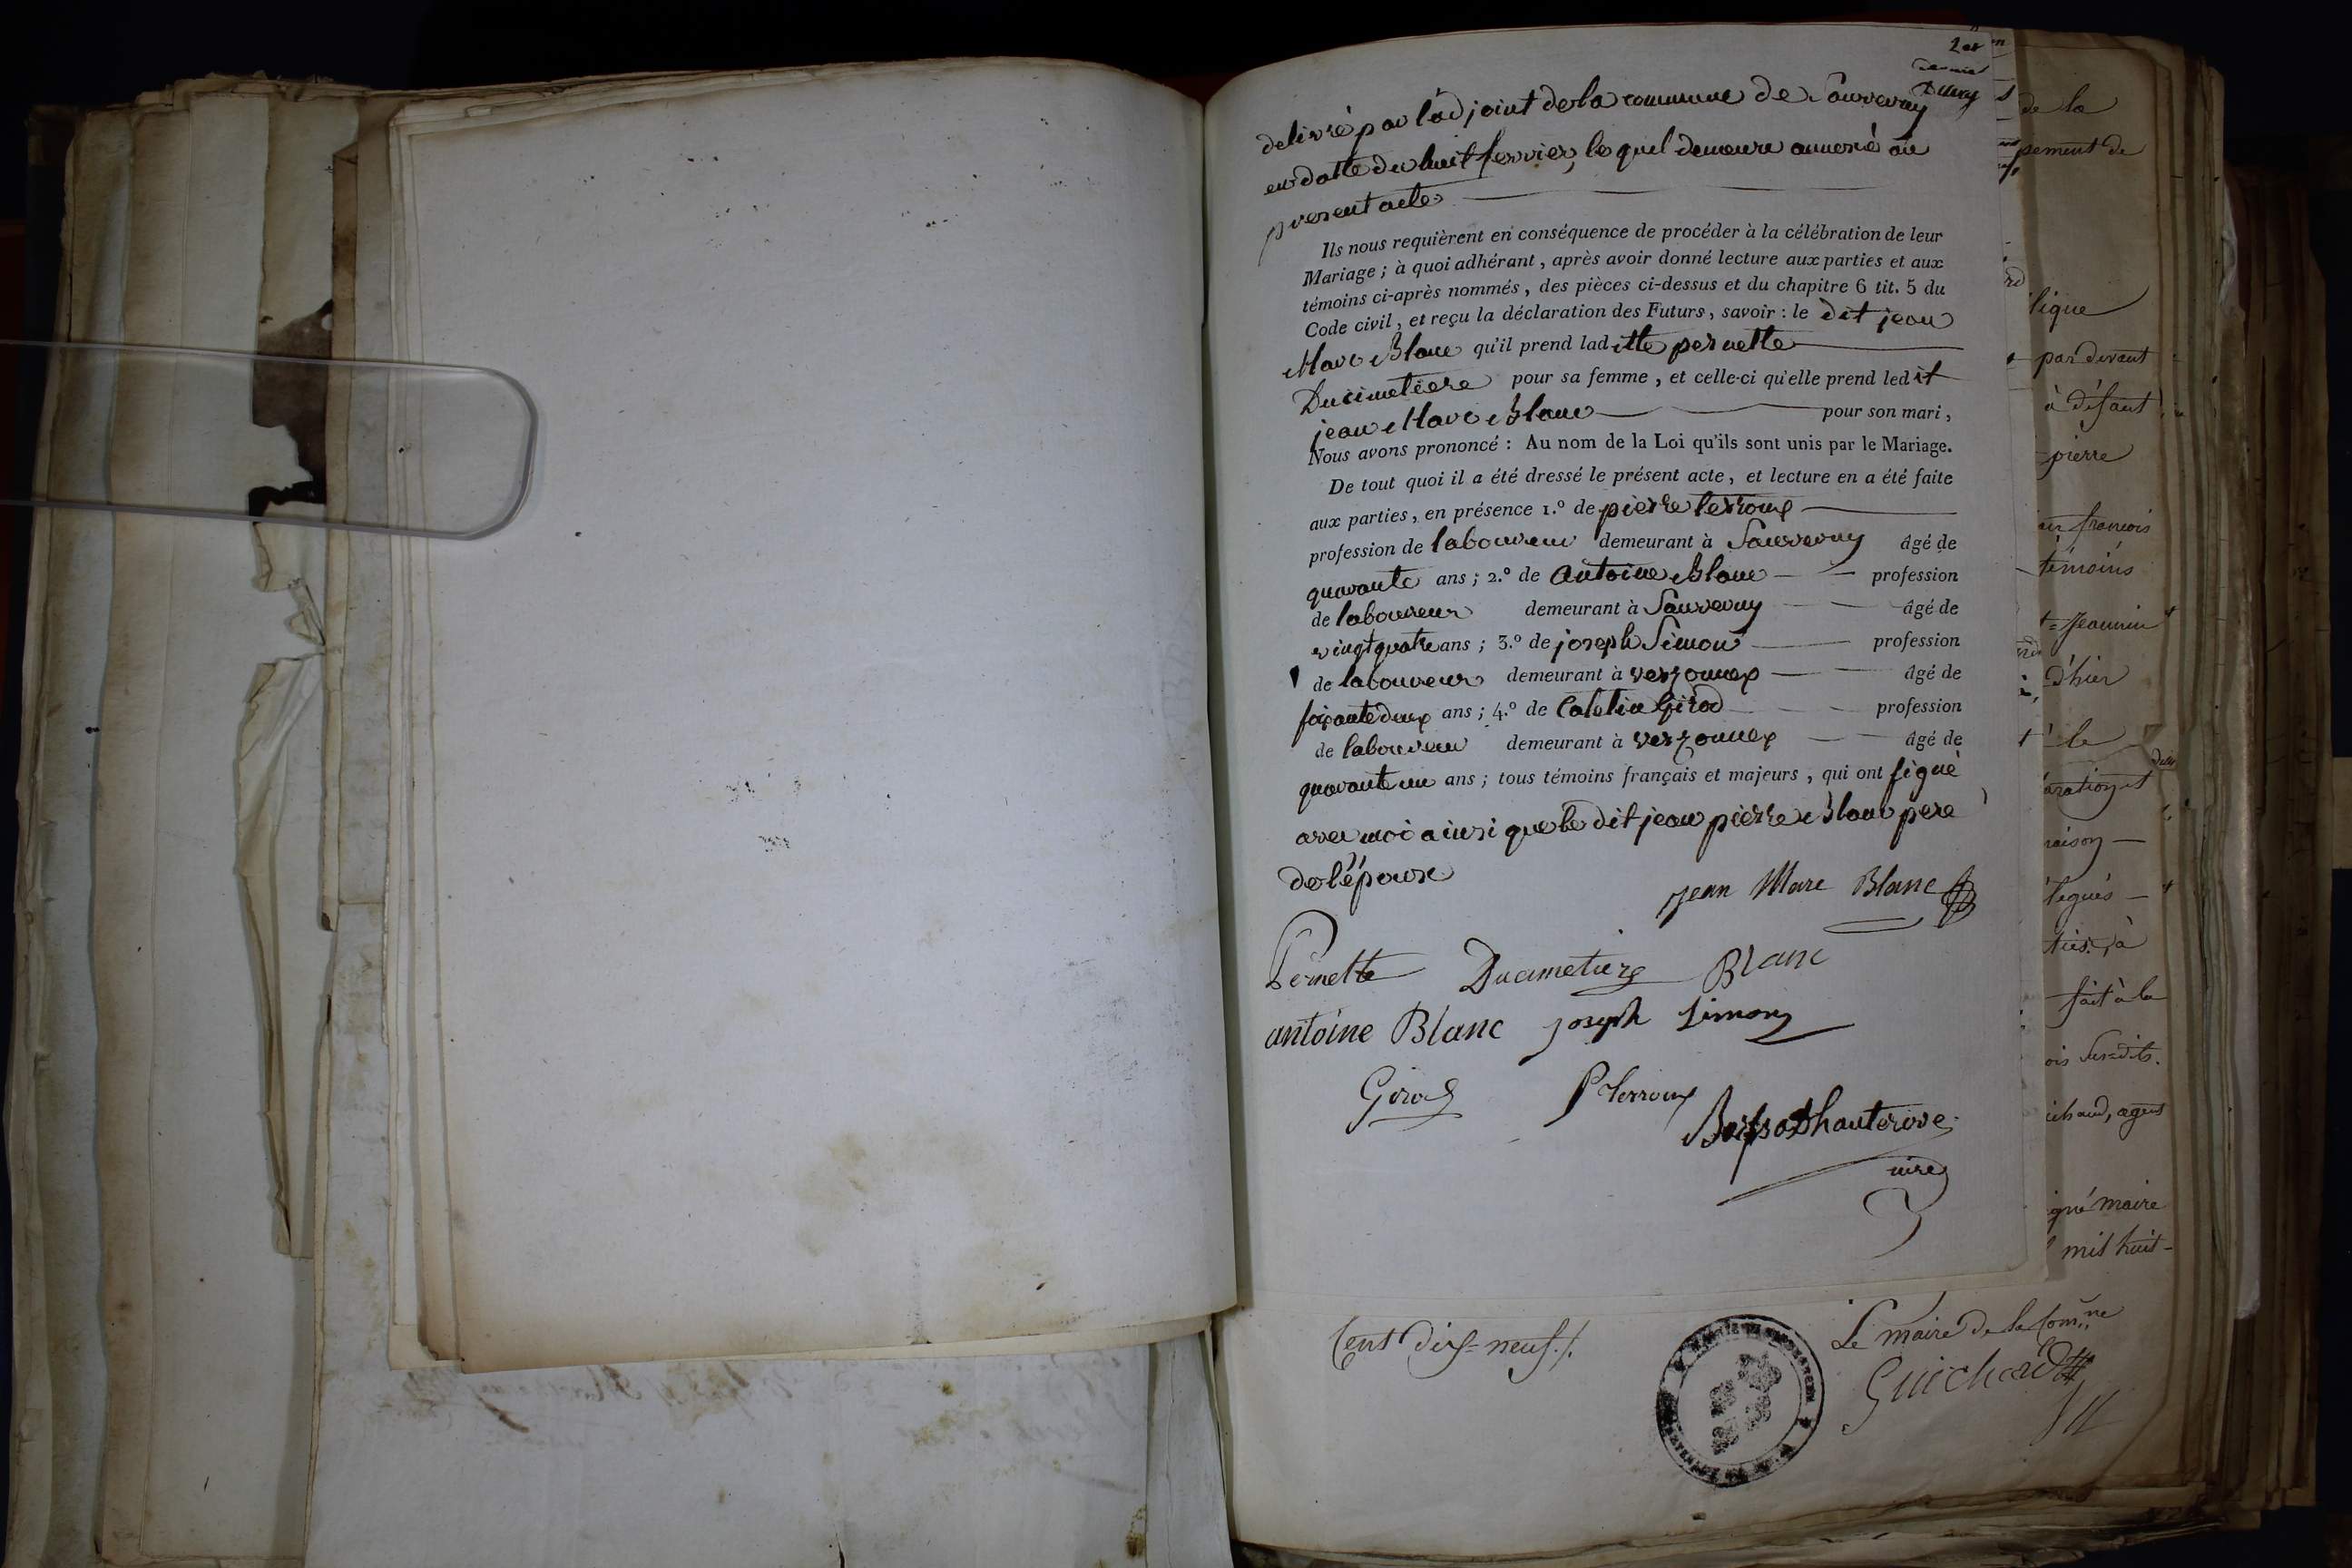 2er
dernier
Duvey
delivré par l'adjoint de la commune de Sauverny
en datte du huit fevrier, lequel demeure annexé au
present acte
Ils nous requièrent en conséquence de procéder à la célébration de leur
Mariage ; à quoi adhérant, après avoir donné lecture aux parties et aux
témoins ci-après nommés, des pièces ci-dessus et du chapitre 6 tit. 5 du
Code civil, et reçu la déclaration des Futurs, savoir : le dit jean
Marc Blanc qu'il prend laditte pernette
Ducimetiere pour sa femme, et celle-ci qu'elle prend ledit
jean Marc Blanc pour son mari,
Nous avons prononcé : Au nom de la Loi qu'ils sont unis par le Mariage.
De tout quoi il a été dressé le présent acte, et lecture en a été faite
aux parties, en présence 1.º de pierre terroux
profession de laboureur demeurant à Sauverny âgé de
quarante ans ; 2.º de Antoine Blanc profession
de laboureur demeurant à Sauverny âgé de
vingt quatre ans ; 3.º de joseph Simon profession
de laboureur demeurant à versonnex âgé de
soixante deux ans ; 4.º de Catelin Girod profession
de laboureur demeurant à versonnex âgé de
quarante un ans ; tous témoins français et majeurs, qui ont signé
avec moi ainsi que le dit jean pierre Blanc pere
de l'époux
jean Marc Blanc
Pernette Ducimetiere Blanc
antoine Blanc joseph Simon
Girod P Terroux
D'hauterive
Cent dix=neuf./.
Le maire de la Comne
Guichard
de la
pement de
par devant
à défaut
pierre
francois
témoins
Jeannin
d'hier
le
raison
fait à la
Sus=dits.
maire
mil huit-